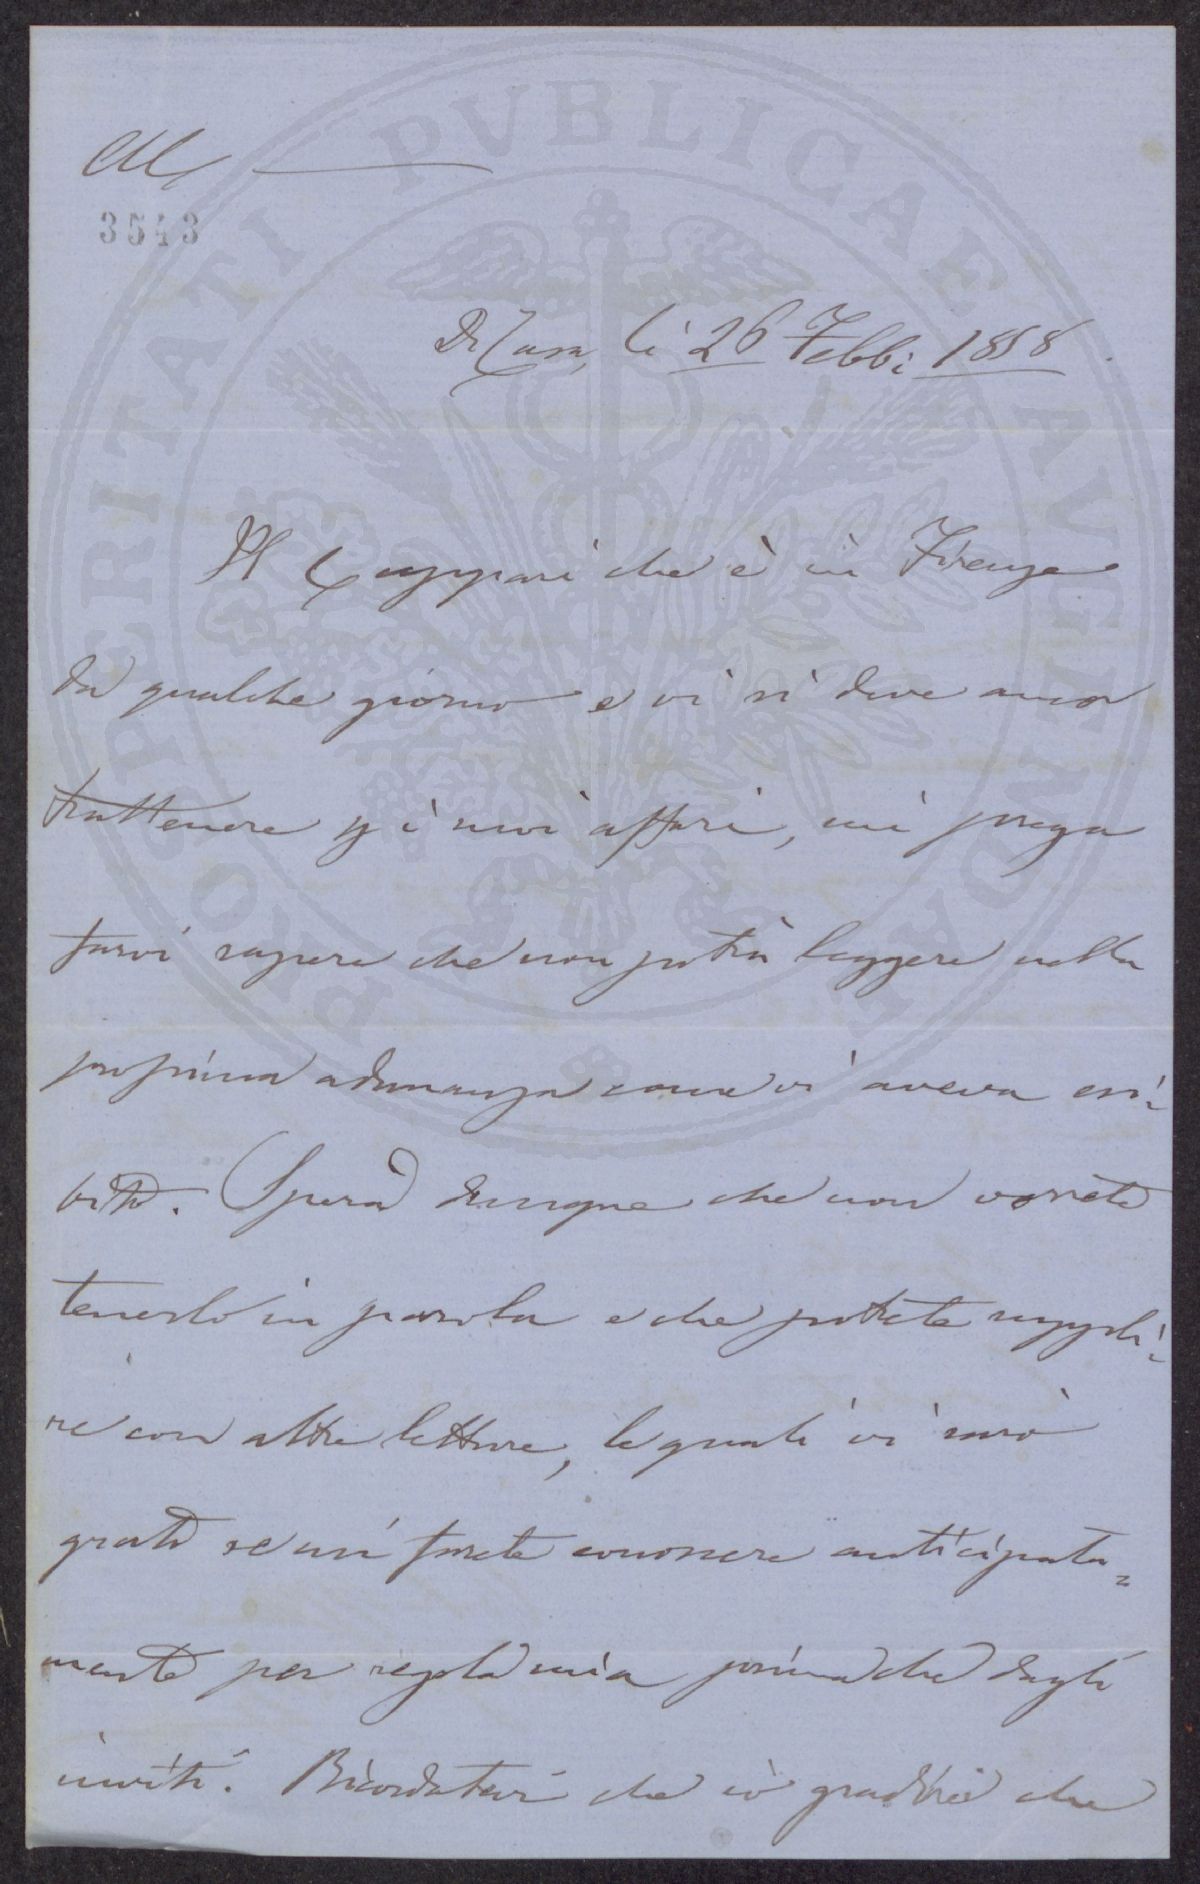 3543
Di Casa, li 26 Febb: 1858
Il Cuppari che è in Firenze
da qualche giorno e vi si deve ancor
trattenere p i suoi affari, mi prega
farvi sapere che non potrà leggere nella
prossima adunanza come vi aveva esi=
bito. Spera dunque che non vorrete
tenerlo in parola e che potrete suppli=
re con altre letture, le quali vi sarò
grato se mi farete conoscere anticipata=
mente per regola mia prima che dagli
inviti. Ricordatevi che io gradirei che
PROSPERITATI PVBLICAE AVGENDAE